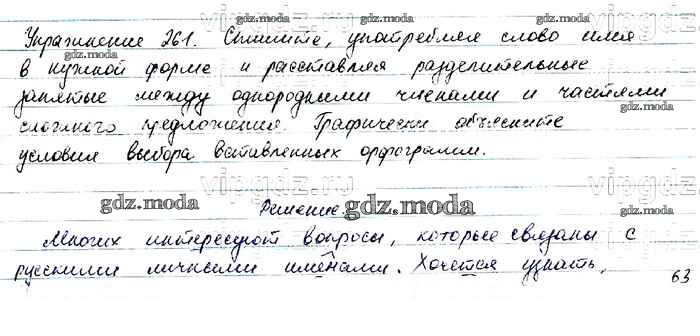 Упражнение 261. Спишите, употребляя слово имя
в нужной форме и расставляя разделительные
запятые между однородными членами и частями
сложного предложения. Графически объясните
условия выбора вставленных орфограмм.
Решение
Многих интересуют вопросы, которые связаны с
русскими личными именами. Хочется узнать,
63
gdz.moda
vipgdz.ru